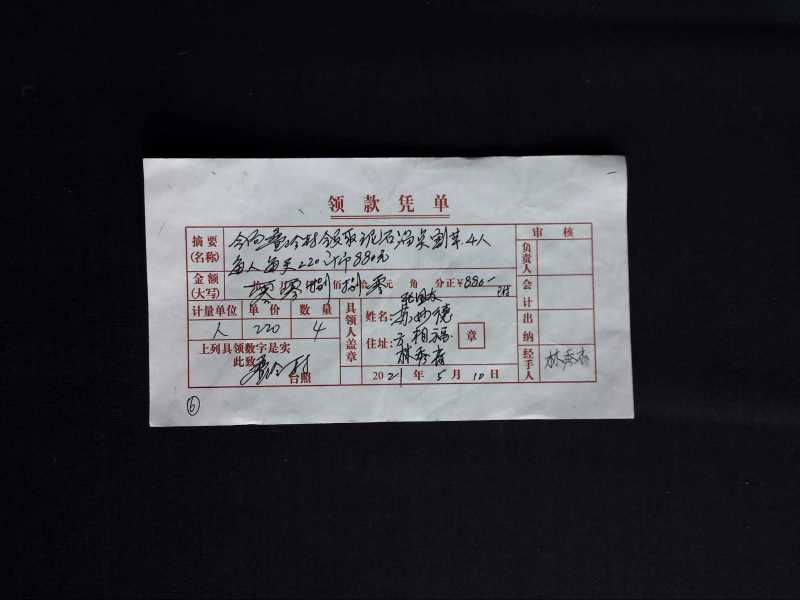 领款凭单
摘要
(名称)
今向 村领取 石 割草.4人
每人每天220 计币880元
金额
(大写)
零 零 捌 佰 捌 拾 零 元 角 分正￥880
计量单位 单价 数量
人 220 4
上列具领数字是实
此致
村
台照
具领人盖章
姓名:
住址:
林秀春
章
2021年5月10日
审核
负责人
会计
出纳
经手人
林秀春
6